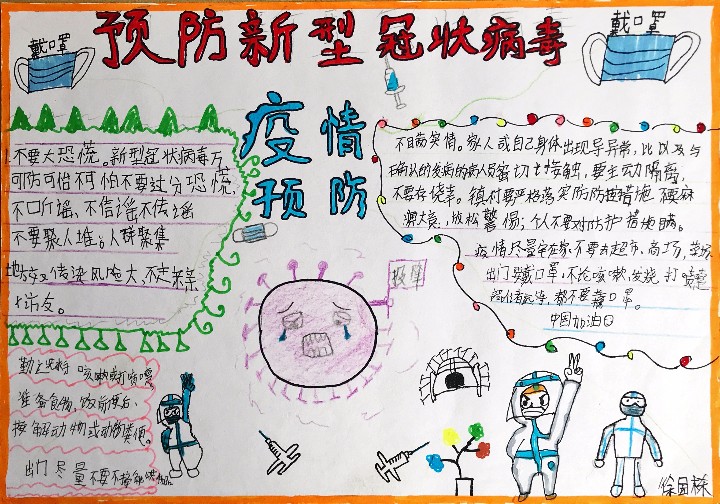 预防新型冠状病毒
戴口罩
戴口罩
疫情
预防
1.不要大恐慌。新型冠状病毒万
可防可怕不可怕不要过分恐慌,
不口斤谣,不信谣不传谣
不要聚人堆。人群聚集
地方,传染风险大,不走亲
访友。
不自病实情。家人或自己身体出现导异常,比以及与
确认的发病的病人员密切土接触,要主动隔离,
不要存侥幸。镇村要严格落实防防控措施 不要麻
痹大意,放松警惕;个人不要对防护措施瞒。
疫情尽量宅在家不要去超市、商场,
出门要戴口罩,不论咳嗽、发烧 打喷嚏
都不要摘口罩。
中国加油
投降
咳嗽
准备食物,饭前便后、
接触动物或动物粪便。
出门尽量不要不接触